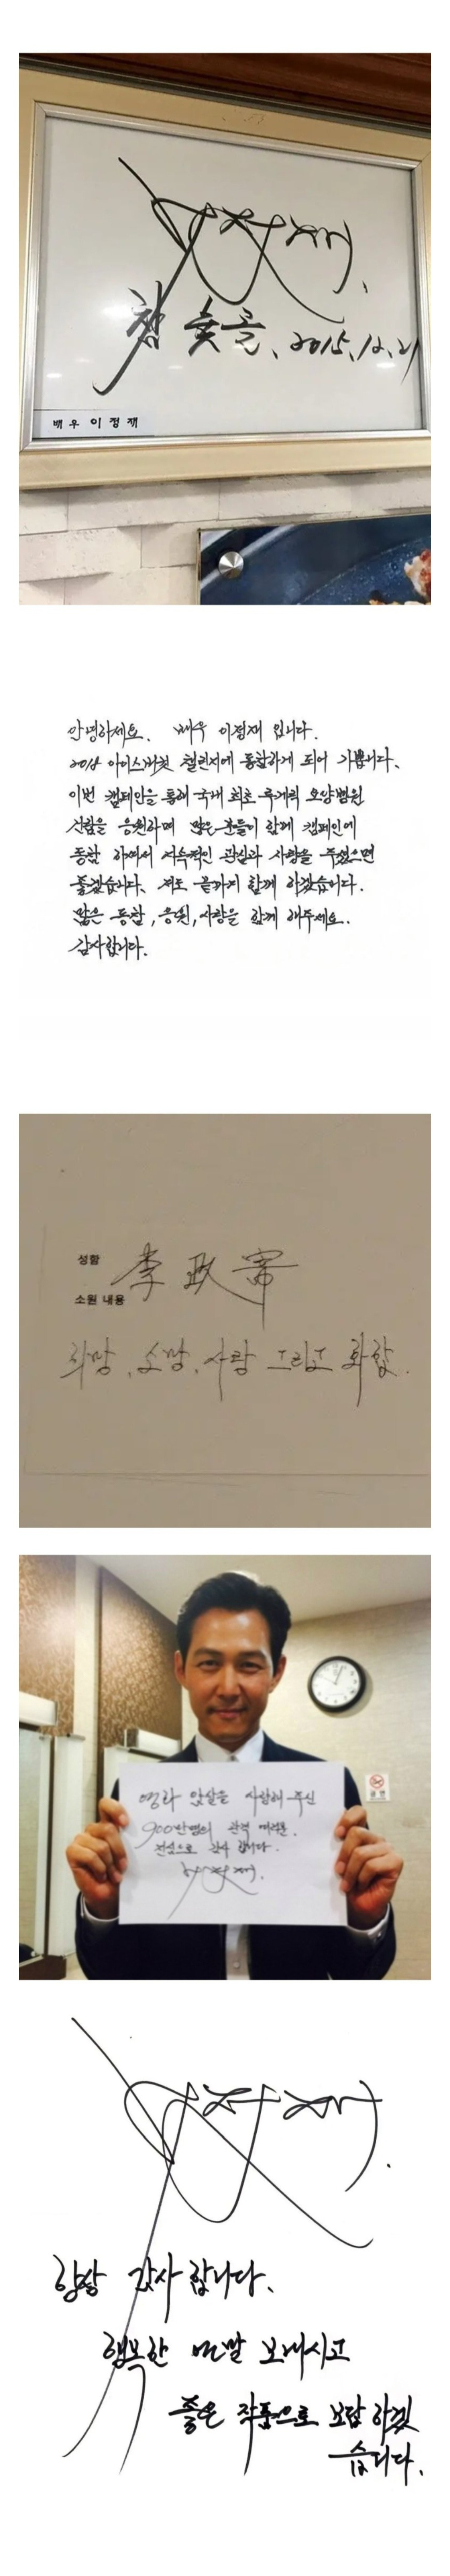 참숯골、2015.12.21
배우 이정재
안녕하세요. 배우 이정재 입니다.
2018 아이스버킷 챌린지에 동참하게 되어 기쁩니다.
이번 캠페인을 통해 국내 최초 루게릭 요양병원
건립을 응원하며 많은 분들이 함께 캠페인에
동참 하여서 지속적인 관심과 사랑을 주셨으면
좋겠습니다. 저도 끝까지 함께 하겠습니다.
많은 동참, 응원, 사랑을 함께 해주세요.
감사합니다.
성함 李政宰
소원 내용
희망, 소망, 사랑 그리고 화합.
영화 암살을 사랑해 주신
900만명의 관객 여러분.
진심으로 감사 합니다.
이정재.
금연
이정재.
항상 감사 합니다.
행복한 연말 보내시고
좋은 작품으로 보답 하겠
습니다.